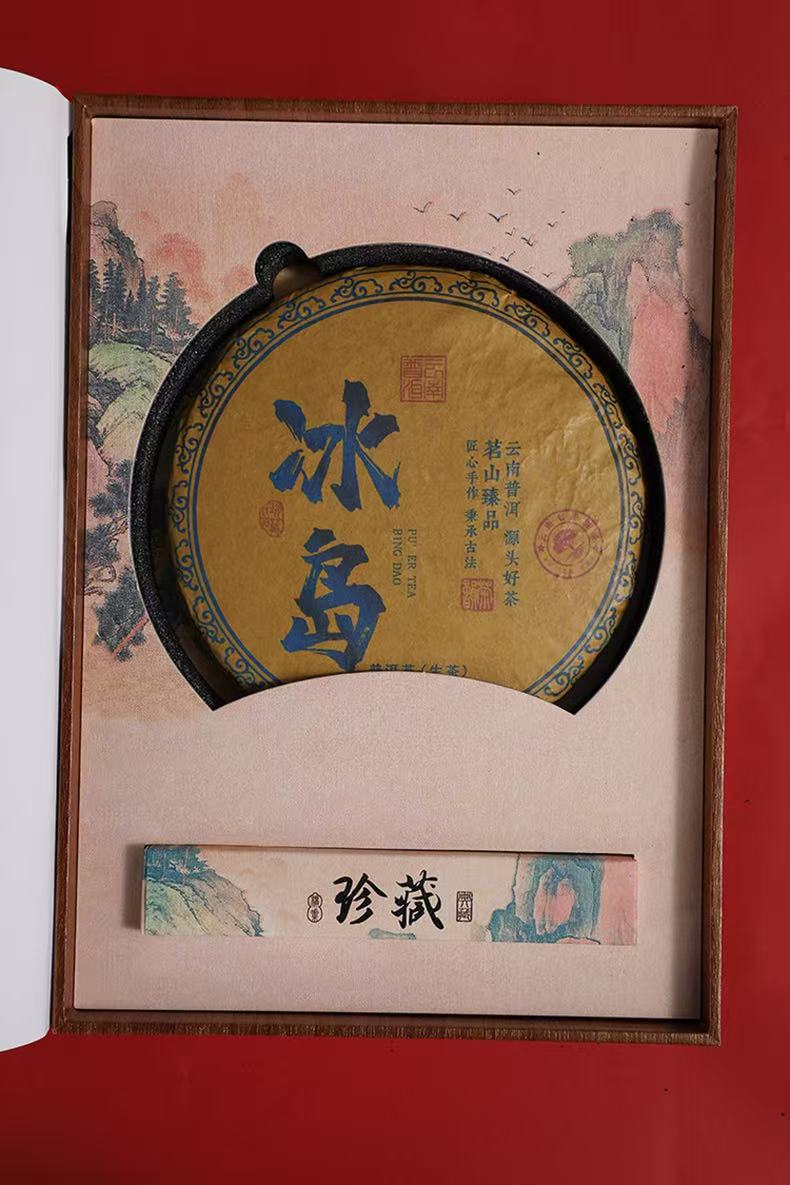 云南
普洱
冰岛
PU' ER TEA
BING DAO
云南普洱 源头好茶
茗山臻品
匠心手作 秉承古法
普洱茶(生茶)
珍藏